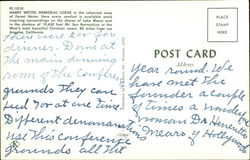 PC-1010
HARRY WETZEL MEMORIAL LODGE in the selective area
of Forest Home. Here every comfort is available amid
inspiring surroundings on the shores of Lake Mears and
in the shadow of 10,630 foot Mt. San Bernardino in the
World's most beautiful Christian resort, 80 miles from Los
Angeles, California.
POST CARD
there were 200 to
dinner. Down at
the main dinning
room of the Conference
grounds they can
feed 700 at one time.
Different denominations
use this conference
grounds all the
year round. We
have met the
founder a couple
of times a wonderful
woman Dr. Henrietta
Mears of Hollywood